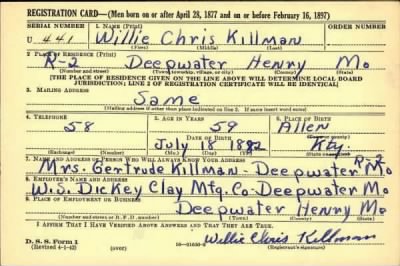 REGISTRATION CARD—(Men born on or after April 28, 1877 and on or before February 16, 1897)
SERIAL NUMBER 1. NAME (Print) ORDER NUMBER
U 441 Willie Chris Killman
(First) (Middle) (Last)
2. PLACE OF RESIDENCE (Print)
R-2 Deepwater Henry Mo
(Number and street) (Town, township, village, or city) (County) (State)
[THE PLACE OF RESIDENCE GIVEN ON THE LINE ABOVE WILL DETERMINE LOCAL BOARD
JURISDICTION; LINE 2 OF REGISTRATION CERTIFICATE WILL BE IDENTICAL]
3. MAILING ADDRESS
Same
[Mailing address if other than place indicated on line 2. If same insert word same]
4. TELEPHONE 5. AGE IN YEARS 6. PLACE OF BIRTH
58 59 Allen
DATE OF BIRTH (Town or county)
July 18 1882 Kty.
(Mo.) (Day) (Yr.) (State or country)
7. NAME AND ADDRESS OF PERSON WHO WILL ALWAYS KNOW YOUR ADDRESS R-2
Mrs. Gertrude Killman - Deepwater Mo
8. EMPLOYER'S NAME AND ADDRESS
W.S. Dickey Clay Mfg. Co - Deepwater Mo
9. PLACE OF EMPLOYMENT OR BUSINESS
Deepwater Henry Mo
(Number and street or R. F. D. number) (Town) (County) (State)
I AFFIRM THAT I HAVE VERIFIED ABOVE ANSWERS AND THAT THEY ARE TRUE.
D. S. S. Form 1 Willie Chris Killman
(Revised 4-1-42) (over) (Registrant's signature)